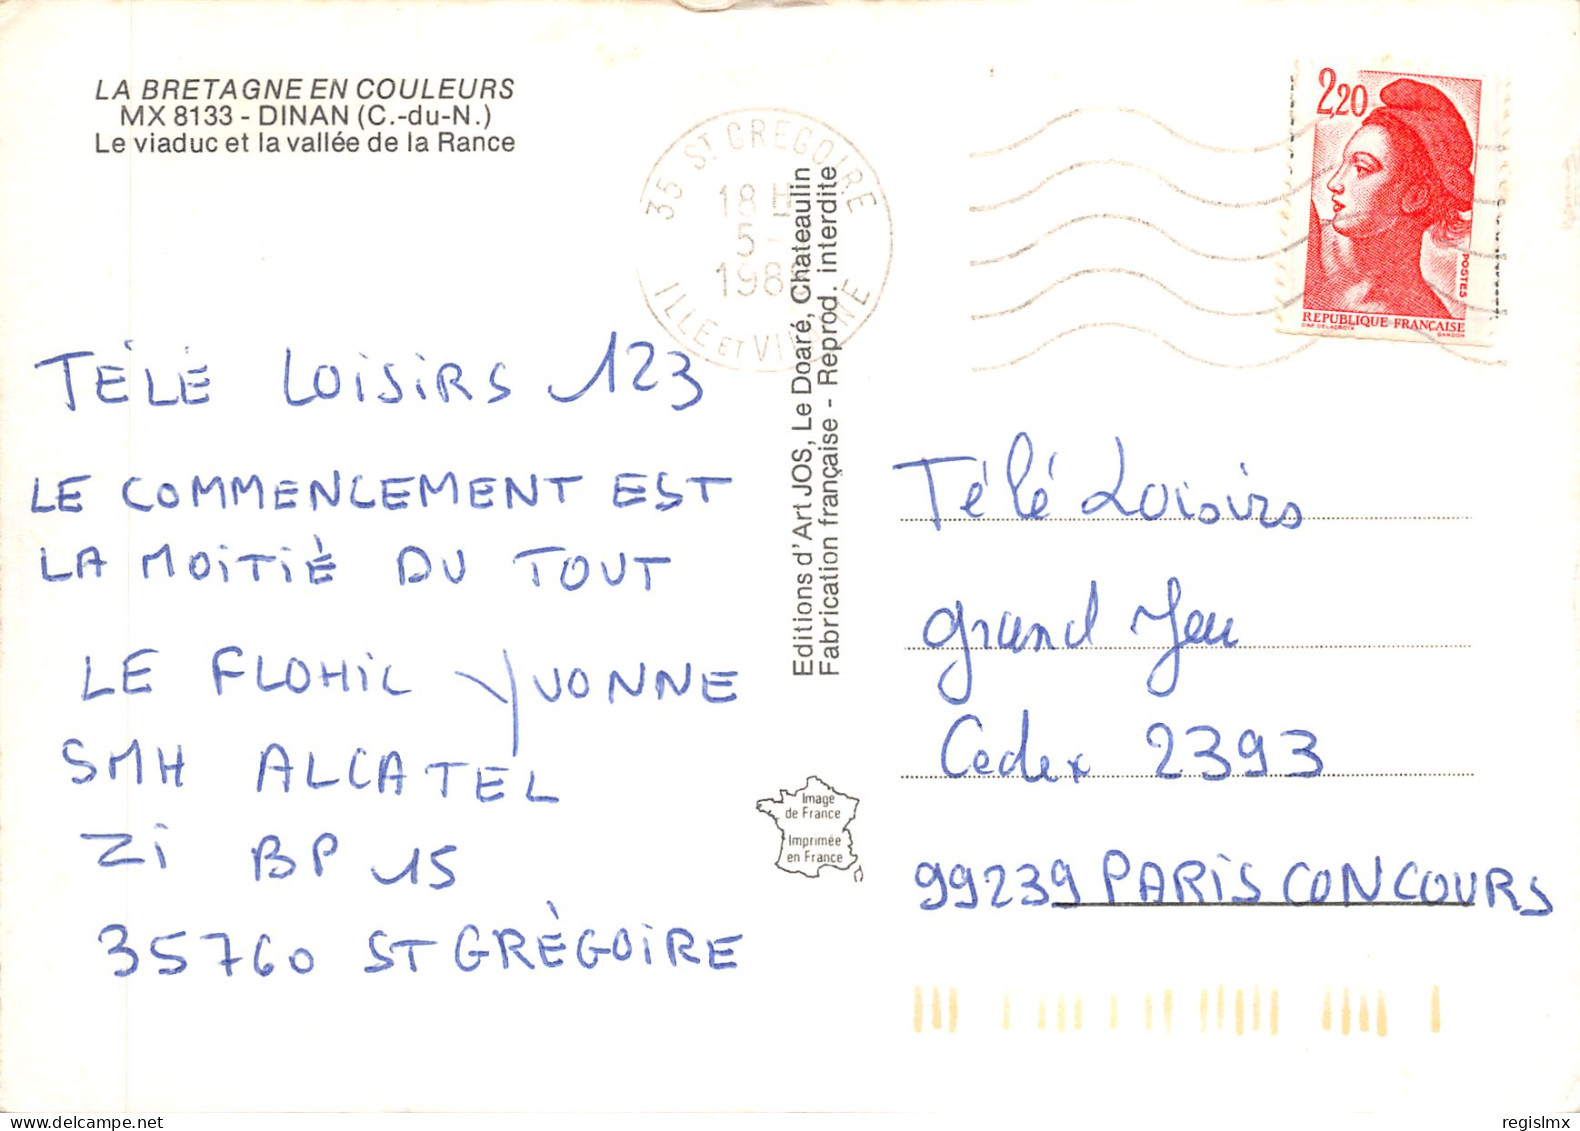 LA BRETAGNE EN COULEURS
MX 8133 - DINAN (C.-du-N.)
Le viaduc et la vallée de la Rance
35 ST GREGOIRE
18 H
5-
198
ILLE ET VILAINE
2,20
POSTES
REPUBLIQUE FRANÇAISE
D'AP. DELACROIX GANDON
TÉLÉ LOISIRS 123
LE COMMENCEMENT EST
LA MOITIÈ DU TOUT
LE FLOHIC YVONNE
SMH ALCATEL
ZI BP 15
35760 ST GRÈGOIRE
Editions d'Art JOS, Le Doaré, Chateaulin
Fabrication française - Reprod. interdite
Image
de France
Imprimée
en France
Télé Loisirs
grand Jeu
Cedex 2393
99239 PARIS CONCOURS
regislmx